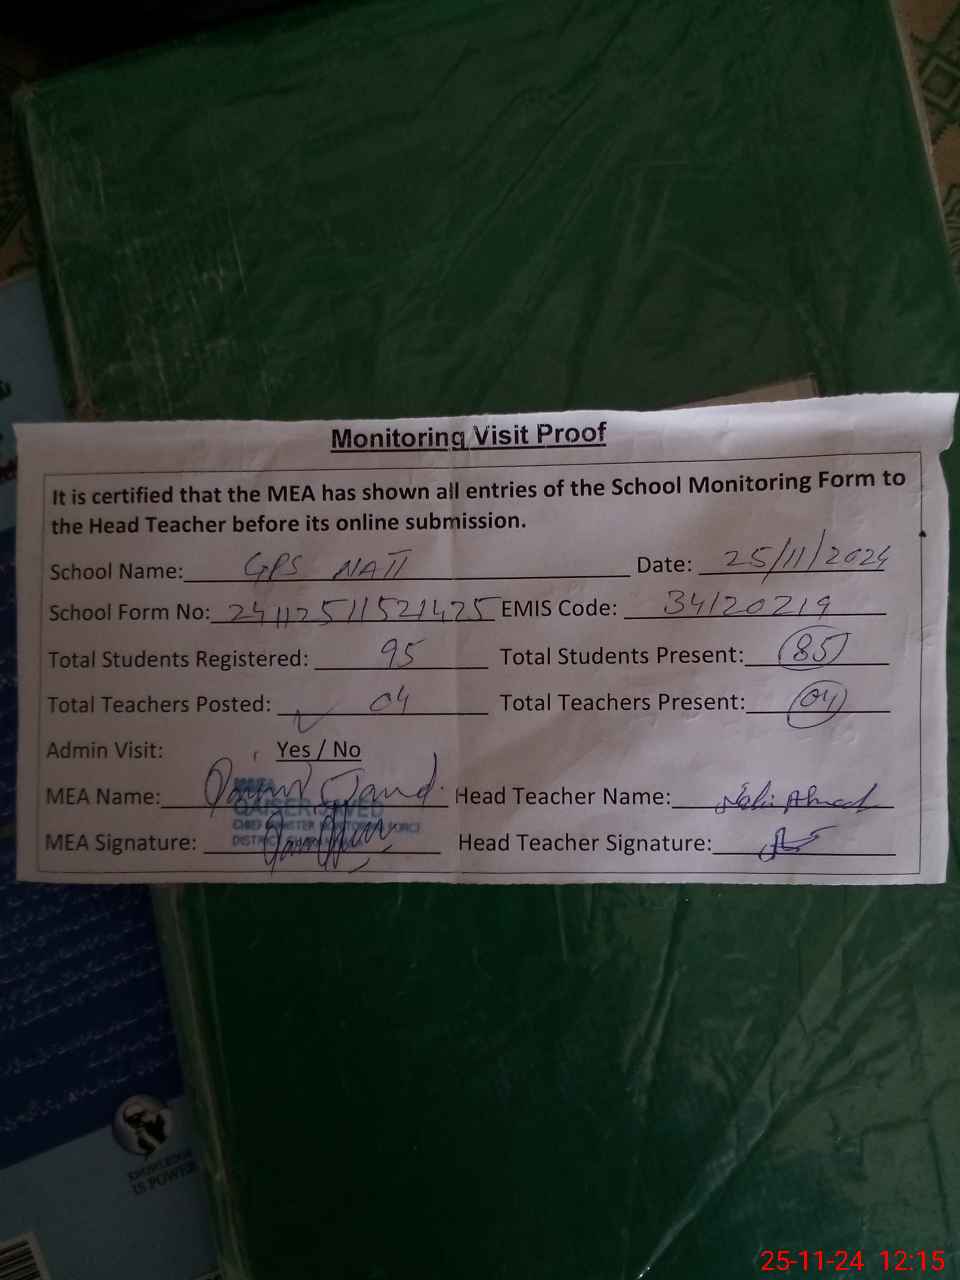 Monitoring Visit Proof
It is certified that the MEA has shown all entries of the School Monitoring Form to
the Head Teacher before its online submission.
School Name: GPS NATT Date: 25/11/2024
School Form No: 24112511521425 EMIS Code: 34120219
Total Students Registered: 95 Total Students Present: 85
Total Teachers Posted: 04 Total Teachers Present: 04
Admin Visit: Yes / No
MEA Name: Head Teacher Name: Ahmad
QAISER JAVED
CHIEF MINISTER MONITORING FORCE
MEA Signature: Head Teacher Signature:
DISTRICT
KNOWLEDGE
IS POWER
25-11-24 12:15